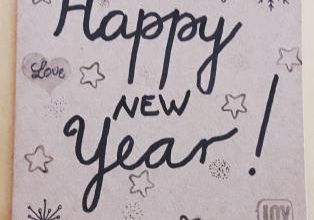 Happy
Love
NEW
Year!
JOY